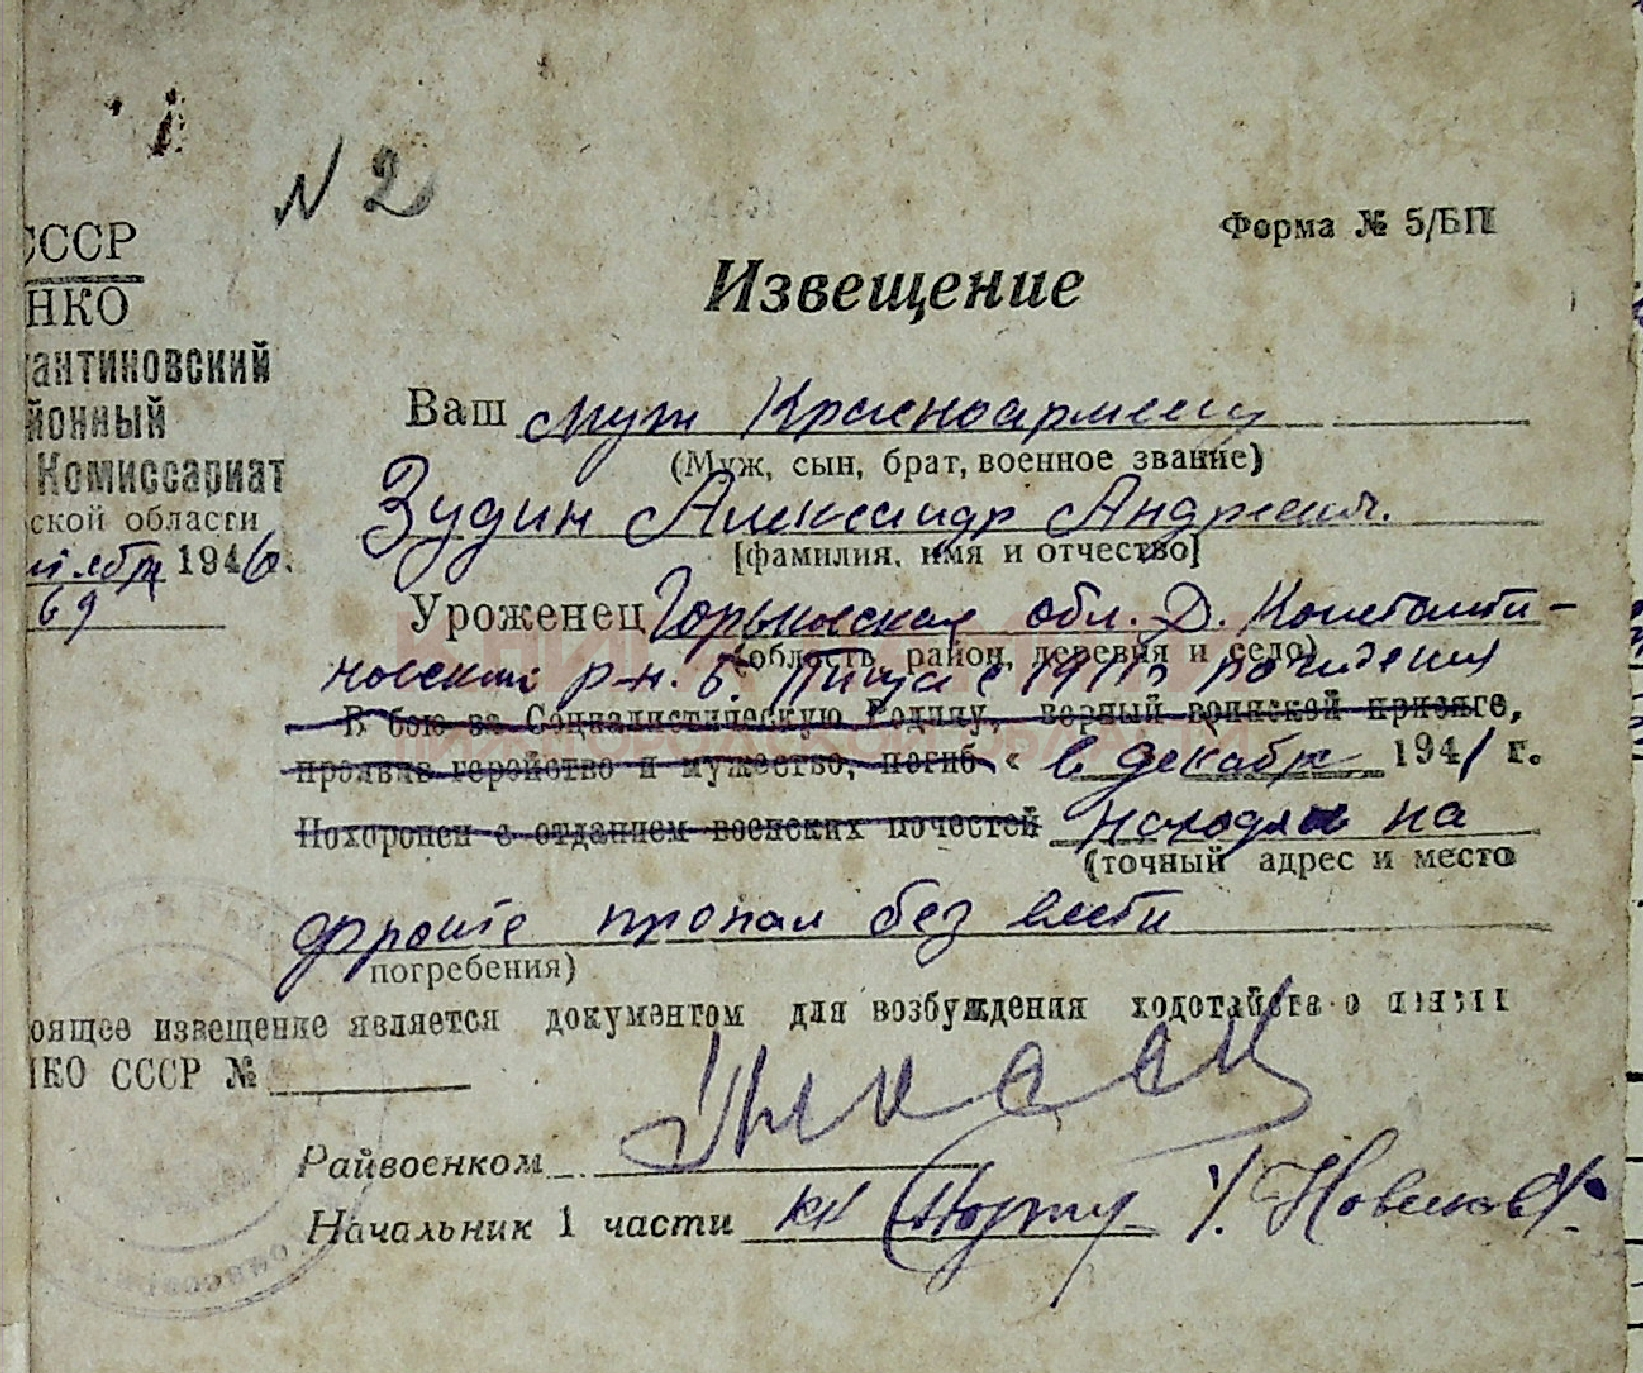 N 2
СССР
НКО
антиновский
йонный
Комиссариат
ской области
1946.
69
Форма № 5/БП
Извещение
Ваш муж Красноармеец
(Муж, сын, брат, военное звание)
Зудин Александр Андреевич.
[фамилия, имя и отчество]
Уроженец Горьковская обл. Д. Константи-
(область, район, деревня и село)
новский р-н. Б. Пица с 1911 рождения
В бою за Социалистическую Родину, верный воинской присяге,
проявив геройство и мужество, погиб « в декабре 1941 г.
Похоронен с отданием воинских почестей находясь на
(точный адрес и место
фронте пропал без вести
погребения)
оящее извещение является документом для возбуждения ходотайства о пенсии
НКО СССР №
Райвоенком
Начальник 1 части
КНИГА ПАМЯТИ
НИЖЕГОРОДСКОЙ ОБЛАСТИ